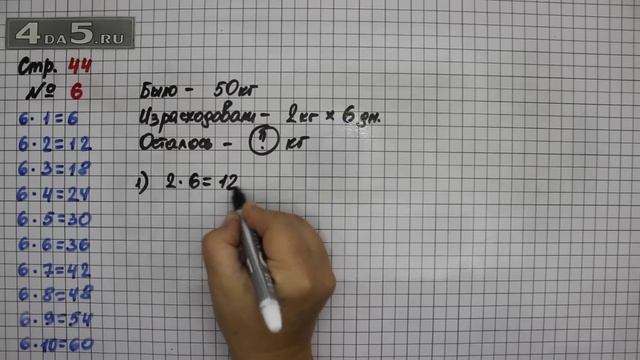 4DA5.RU
Стр. 44
№ 6
6·1=6
6·2=12
6·3=18
6·4=24
6·5=30
6·6=36
6·7=42
6·8=48
6·9=54
6·10=60
Было - 50кг
Израсходовали - 2кг × 6 дн.
Осталось - ? кг
1) 2·6=12